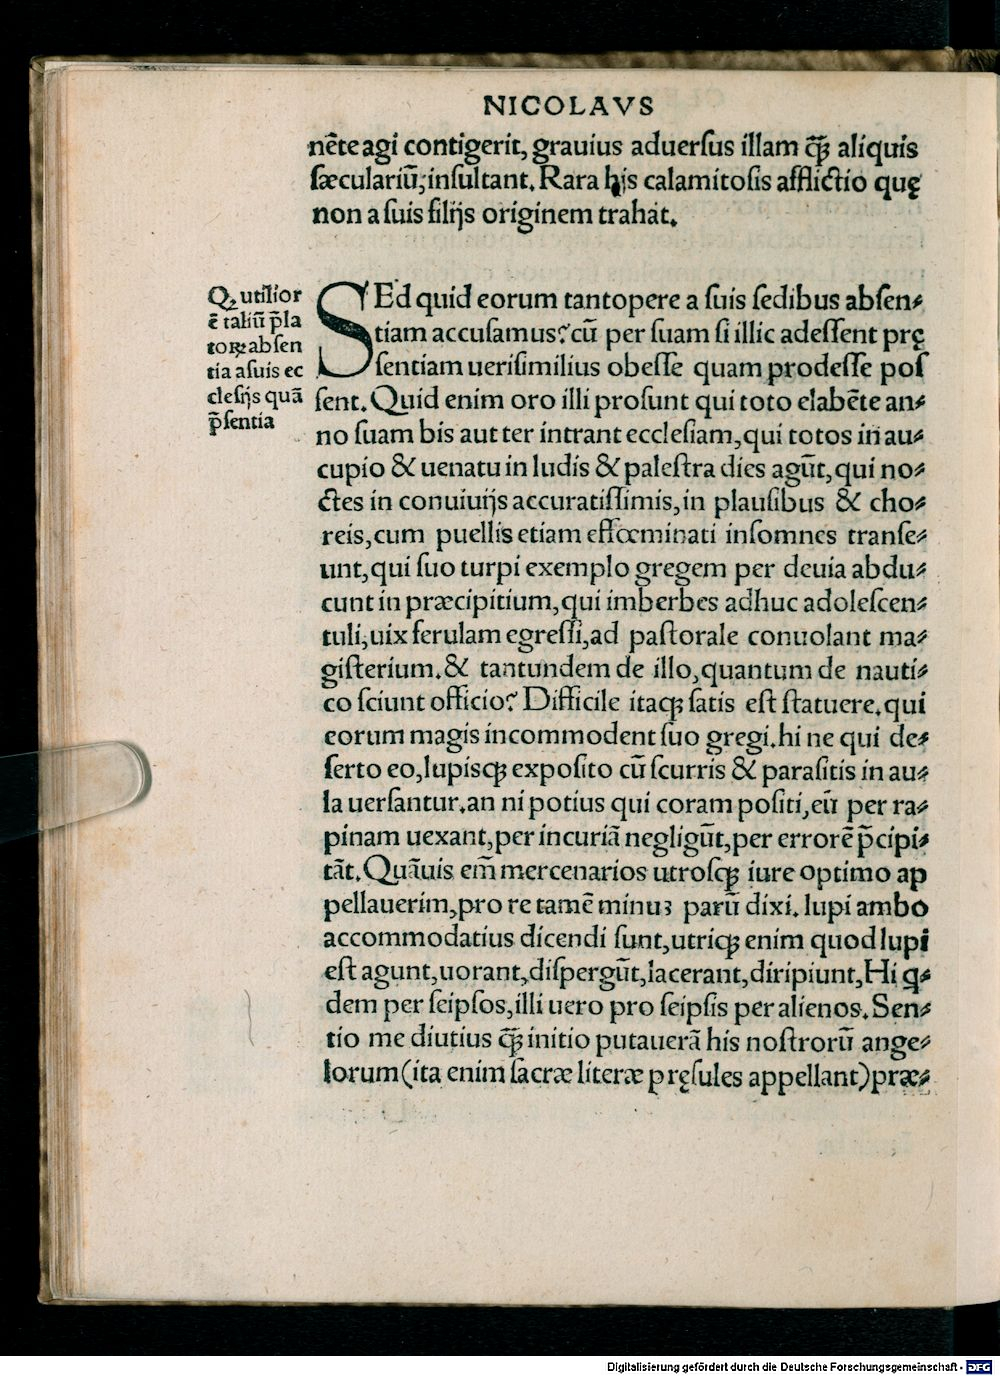 NICOLAVS
nēte agi contigerit, grauius aduerſus illam q̃ꝫ aliquis
ſæculariũ, inſultant. Rara hijs calamitoſis afflictio quę
non a ſuis filijs originem trahat.
Qꝫ utilior
ē taliũ p̃la
toꝝ abſen
tia a ſuis ec
cleſijs quã
p̃ſentia
SEd quid eorum tantopere a ſuis ſedibus abſen⸗
tiam accuſamus? cũ per ſuam ſi illic adeſſent prę
ſentiam ueriſimilius obeſſe quam prodeſſe poſ
ſent. Quid enim oro illi proſunt qui toto elabēte an⸗
no ſuam bis aut ter intrant eccleſiam, qui totos in au⸗
cupio & uenatu in ludis & paleſtra dies agũt, qui no⸗
ctes in conuiuijs accuratiſſimis, in plauſibus & cho⸗
reis, cum puellis etiam effœminati inſomnes tranſe⸗
unt, qui ſuo turpi exemplo gregem per deuia abdu⸗
cunt in præcipitium, qui imberbes adhuc adoleſcen⸗
tuli, uix ferulam egreſſi, ad paſtorale conuolant ma⸗
giſterium. & tantundem de illo, quantum de nauti⸗
co ſciunt officio? Difficile itaqꝫ ſatis eſt ſtatuere. qui
eorum magis incommodent ſuo gregi. hi ne qui de⸗
ſerto eo, lupisqꝫ expoſito cũ ſcurris & paraſitis in au⸗
la uerſantur. an ni potius qui coram poſiti, eũ per ra⸗
pinam uexant, per incuriã negligũt, per errorē p̃cipi⸗
tãt. Quãuis em̃ mercenarios utroſqꝫ iure optimo ap
pellauerim, pro re tamē minuꝫ parũ dixi. lupi ambo
accommodatius dicendi ſunt, utriqꝫ enim quod lupi
eſt agunt, uorant, diſpergũt, lacerant, diripiunt, Hi q⸗
dem per ſeipſos, illi uero pro ſeipſis per alienos. Sen⸗
tio me diutius q̃ꝫ initio putauerã his noſtrorũ ange⸗
lorum (ita enim ſacræ literæ pręſules appellant) præ⸗
Digitalisierung gefördert durch die Deutsche Forschungsgemeinschaft - DFG